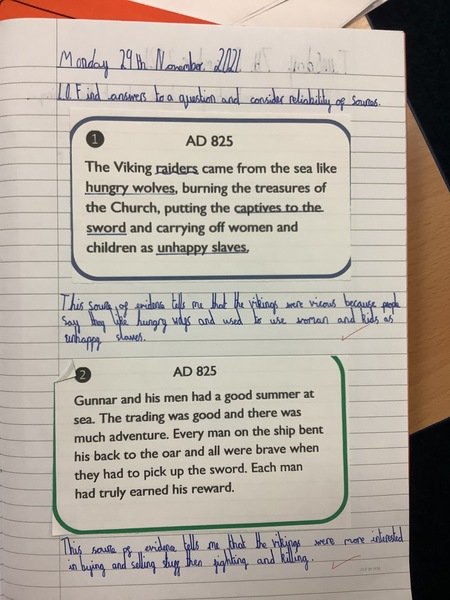 Monday 29th November 2021.
L.O Find answers to a question and consider reliability of sources.
1
AD 825
The Viking raiders came from the sea like
hungry wolves, burning the treasures of
the Church, putting the captives to the
sword and carrying off women and
children as unhappy slaves.
This source of evidence tells me that the vikings were vicous because people
say they like hungry ways and used to use woman and kids as
unhappy slaves.
2
AD 825
Gunnar and his men had a good summer at
sea. The trading was good and there was
much adventure. Every man on the ship bent
his back to the oar and all were brave when
they had to pick up the sword. Each man
had truly earned his reward.
This source of evidence tells me that the vikings were more interested
in bying and selling stuff then fighting and killing.